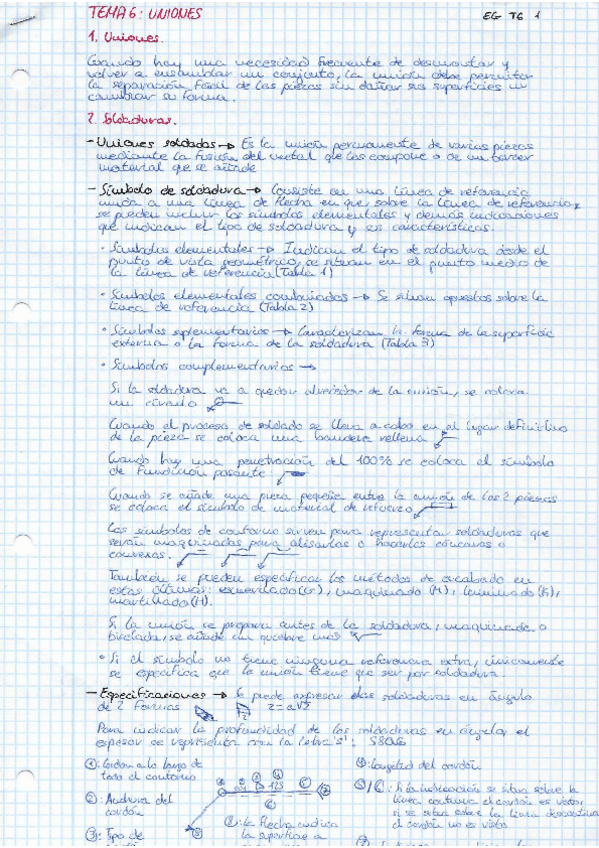 TEMA 6: UNIONES
EG T6 1
1. Uniones.
Cuando hay una necesidad frecuente de desmontar y
volver a ensamblar un conjunto, la unión debe permitir
la separación fácil de las piezas sin dañar sus superficies ni
cambiar su forma.
2. Soldaduras.
- Uniones soldadas → Es la unión permanente de varias piezas
mediante la fusión del metal que las compone o de un tercer
material que se añade
- Símbolo de soldadura → Consiste en una línea de referencia
unida a una línea de flecha en que sobre la línea de referencia,
se pueden incluir los símbolos elementales y demás indicaciones
que indican el tipo de soldadura y sus características.
· Símbolos elementales → Indican el tipo de soldadura desde el
punto de vista geométrico, se sitúan en el punto medio de
la línea de referencia (Tabla 1)
· Símbolos elementales combinados → Se sitúan opuestos sobre la
línea de referencia (Tabla 2)
· Símbolos suplementarios → Caracterizan la forma de la superficie
externa o la forma de la soldadura (Tabla 3)
· Símbolos complementarios →
Si la soldadura va a quedar alrededor de la unión, se coloca
un círculo
Cuando el proceso de soldado se lleva a cabo en el lugar definitivo
de la pieza se coloca una bandera rellena
Cuando hay una penetración del 100% se coloca el símbolo
de fundición pasante
Cuando se añade una pieza pequeña entre la unión de las 2 piezas
se coloca el símbolo de material de refuerzo
Los símbolos de contorno sirven para representar soldaduras que
serán maquinadas para alisarlas o hacerlas cóncavas o
convexas.
También se pueden especificar los métodos de acabado en
estas últimas: esmerilado (G), maquinado (M), laminado (R),
martillado (H).
Si la unión se prepara antes de la soldadura, maquinada o
biselada, se añade un quiebre más
· Si el símbolo no tiene ninguna referencia extra, únicamente
se especifica que la unión tiene que ser por soldadura.
- Especificaciones → Se puede expresar las soldaduras en ángulo
de 2 formas z = a√2
Para indicar la profundidad de las soldaduras en ángulo, el
espesor se representa con la letra 's':
①: Cordón a lo largo de
todo el contorno
②: Anchura del
cordón
③: Tipo de
: La flecha indica
la superficie a
: Longitud del cordón
: Si la indicación se sitúa sobre la
línea continua el cordón es visto,
si se sitúa sobre la línea discontinua
el cordón no es visto